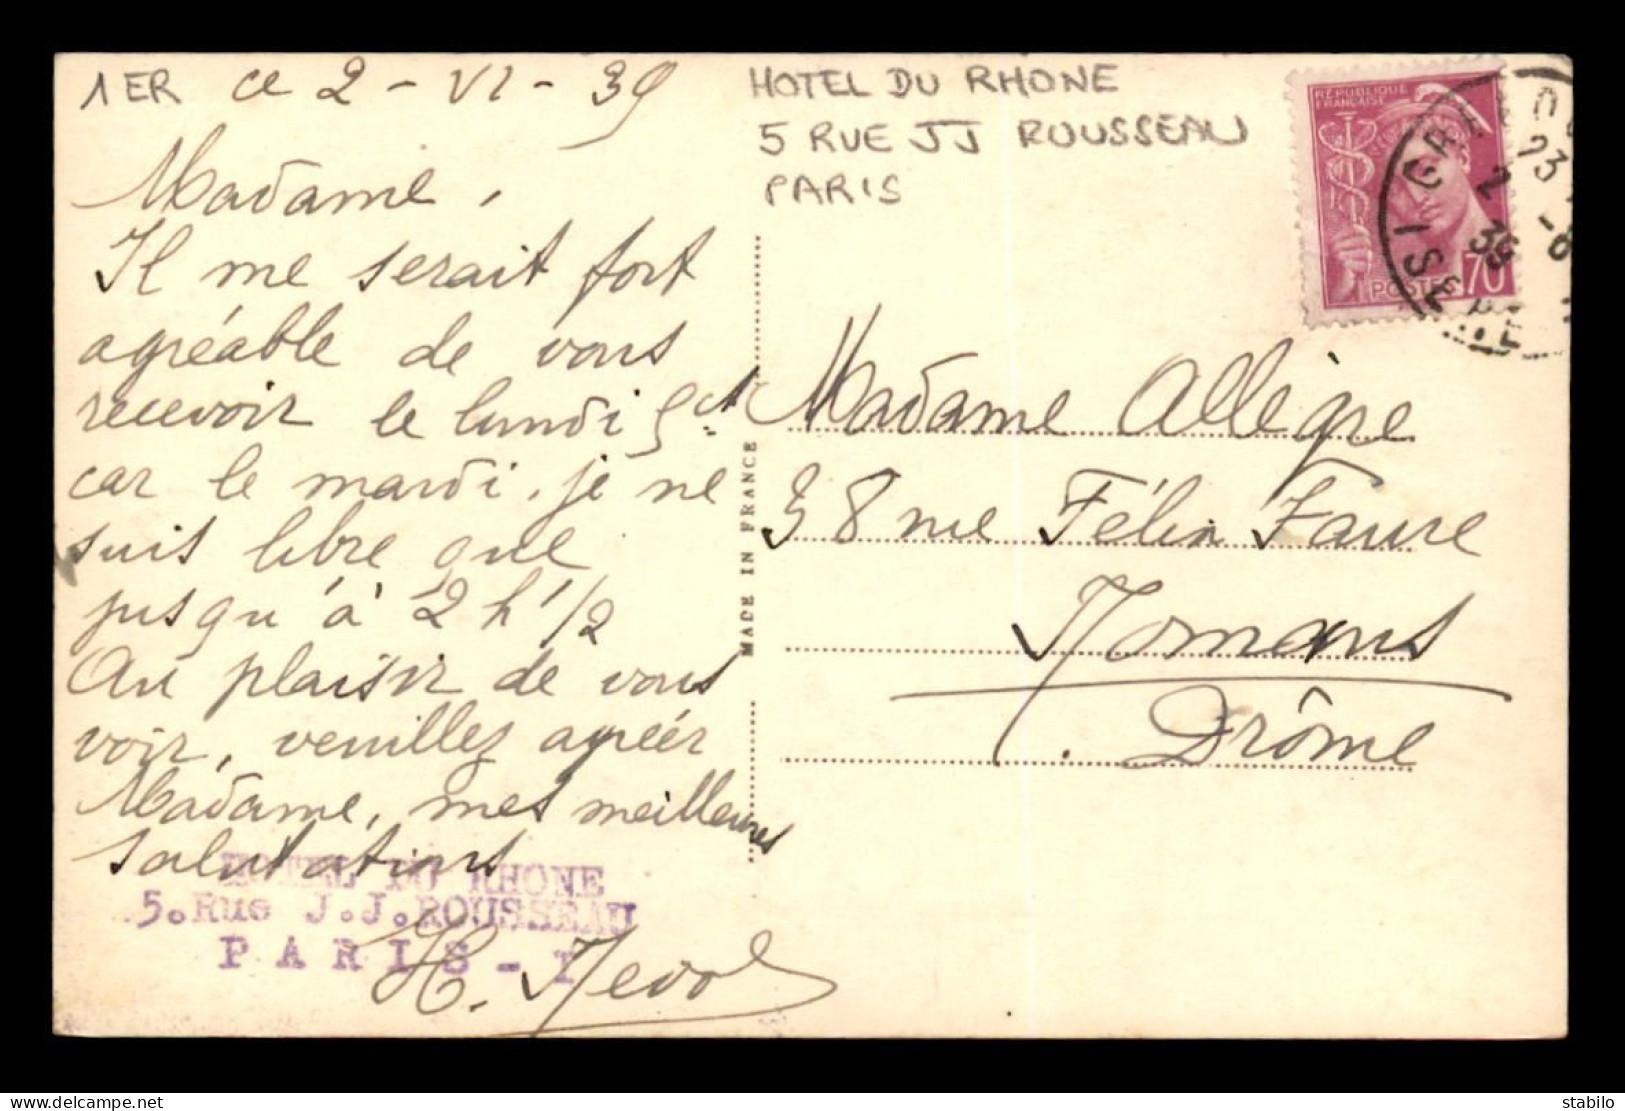 1ER ce 2 - VI - 39
Madame,
Il me serait fort
agréable de vous
recevoir le lundi 5 ct
car le mardi, je ne
suis libre que
jusqu'à 2 h 1/2
Au plaisir de vous
voir, veuillez agréér
Madame, mes meilleures
salutations
HOTEL DU RHONE
5. Rue J.J. ROUSSEAU
PARIS - I
H.
MADE IN FRANCE
HOTEL DU RHONE
5 RUE JJ ROUSSEAU
PARIS
RÉPUBLIQUE
FRANÇAISE
POSTES 70
ISERE
Madame Allègre
38 rue Félix Faure
Romans
Drôme
www.delcampe.net
stabilo